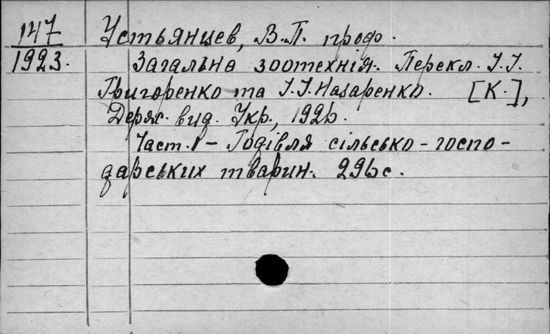 147
1923.
Устьянцев, В.П. проф.
Загальна зоотехнія. Перекл. І.І.
Григоренко та І.І. Назаренко. [К.],
Держ. вид. Укр., 192
Част. І - Годівля сільсько-госпо-
дарських тварин. 296с.